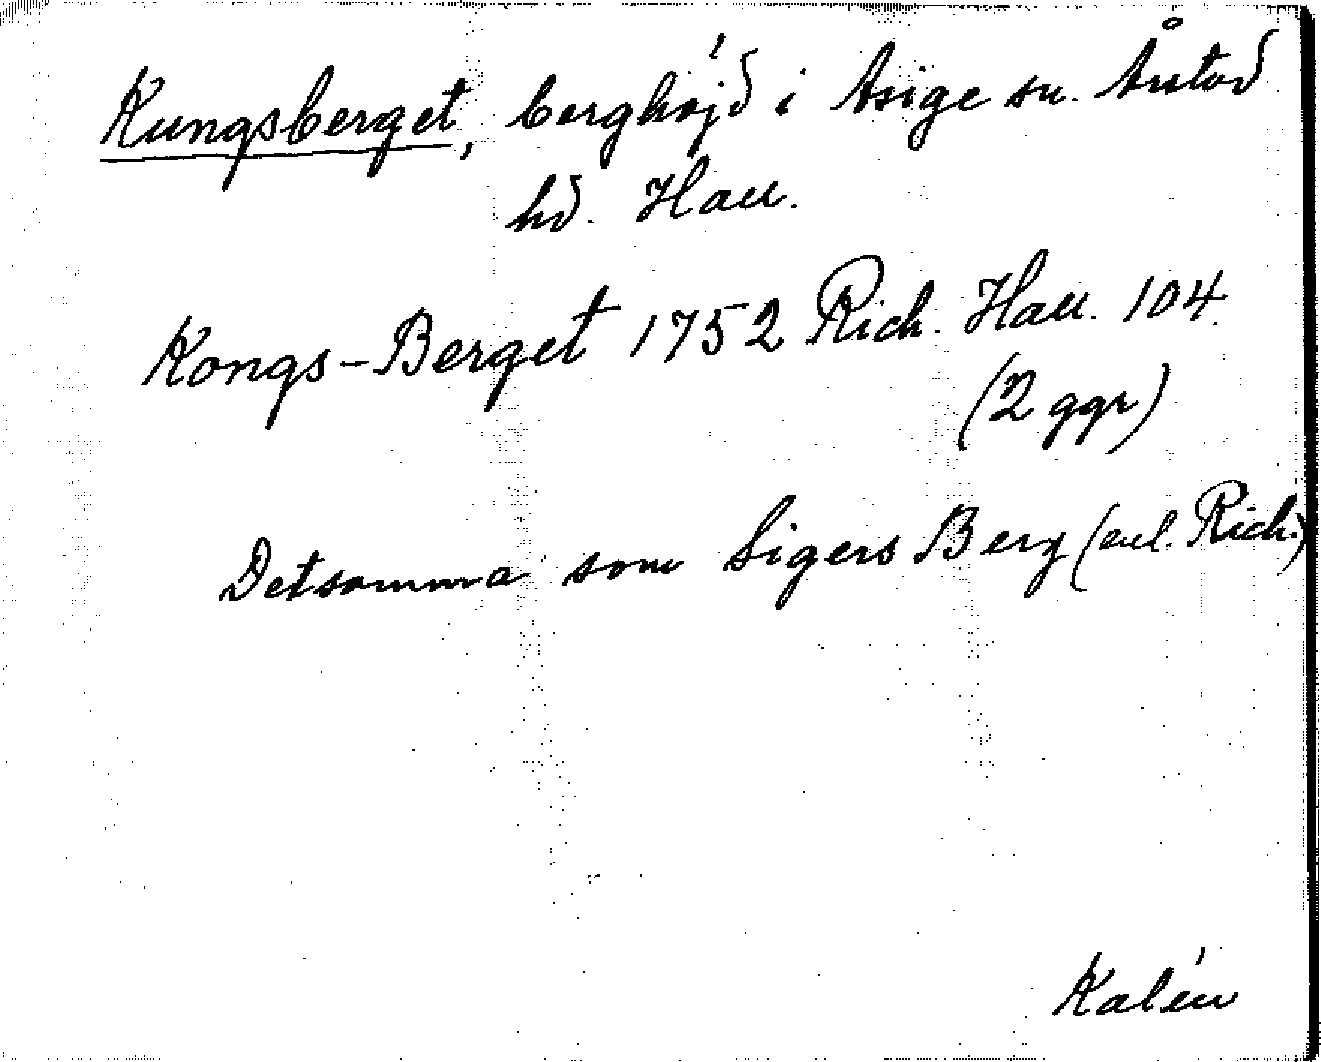 Kungsberget, berghöjd i Asige sn. Årstad
hd. Hall.
Kongs-Berget 1752 Rich. Hall. 104.
(2 ggr)
Detsamma som Sigers Berg (enl. Rich.)
Kalén